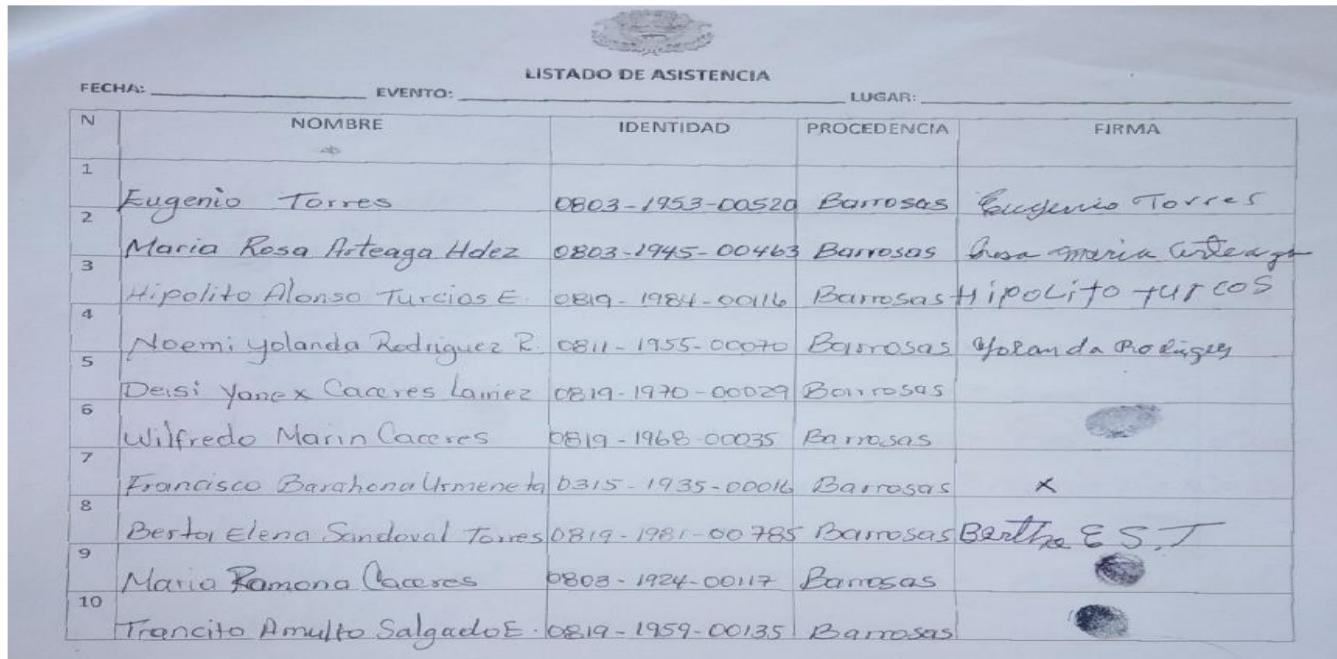 LISTADO DE ASISTENCIA
FECHA: EVENTO: LUGAR:
N NOMBRE IDENTIDAD PROCEDENCIA FIRMA
1 Eugenio Torres 0803-1953-00520 Barrosas Eugenio Torres
2 Maria Rosa Arteaga Hdez 0803-1945-00463 Barrosas Rosa maria Arteaga
3 Hipolito Alonso Turcios E. 0819-1984-00116 Barrosas HipoLito turcos
4 Noemi Yolanda Rodriguez R. 0811-1955-00070 Barrosas Yolanda Rodigez
5 Deisi Yanex Caceres Lainez 0819-1970-00029 Barrosas
6 Wilfredo Marin Caceres 0819-1968-00035 Barrosas
7 Francisco Barahona Urmeneta 0315-1935-00016 Barrosas x
8 Berta Elena Sandoval Torres 0819-1981-00785 Barrosas Bertha E S.T
9 Maria Ramona Caceres 0803-1924-00117 Barrosas
10 Trancito Arnulfo Salgado E. 0819-1959-00135 Barrosas